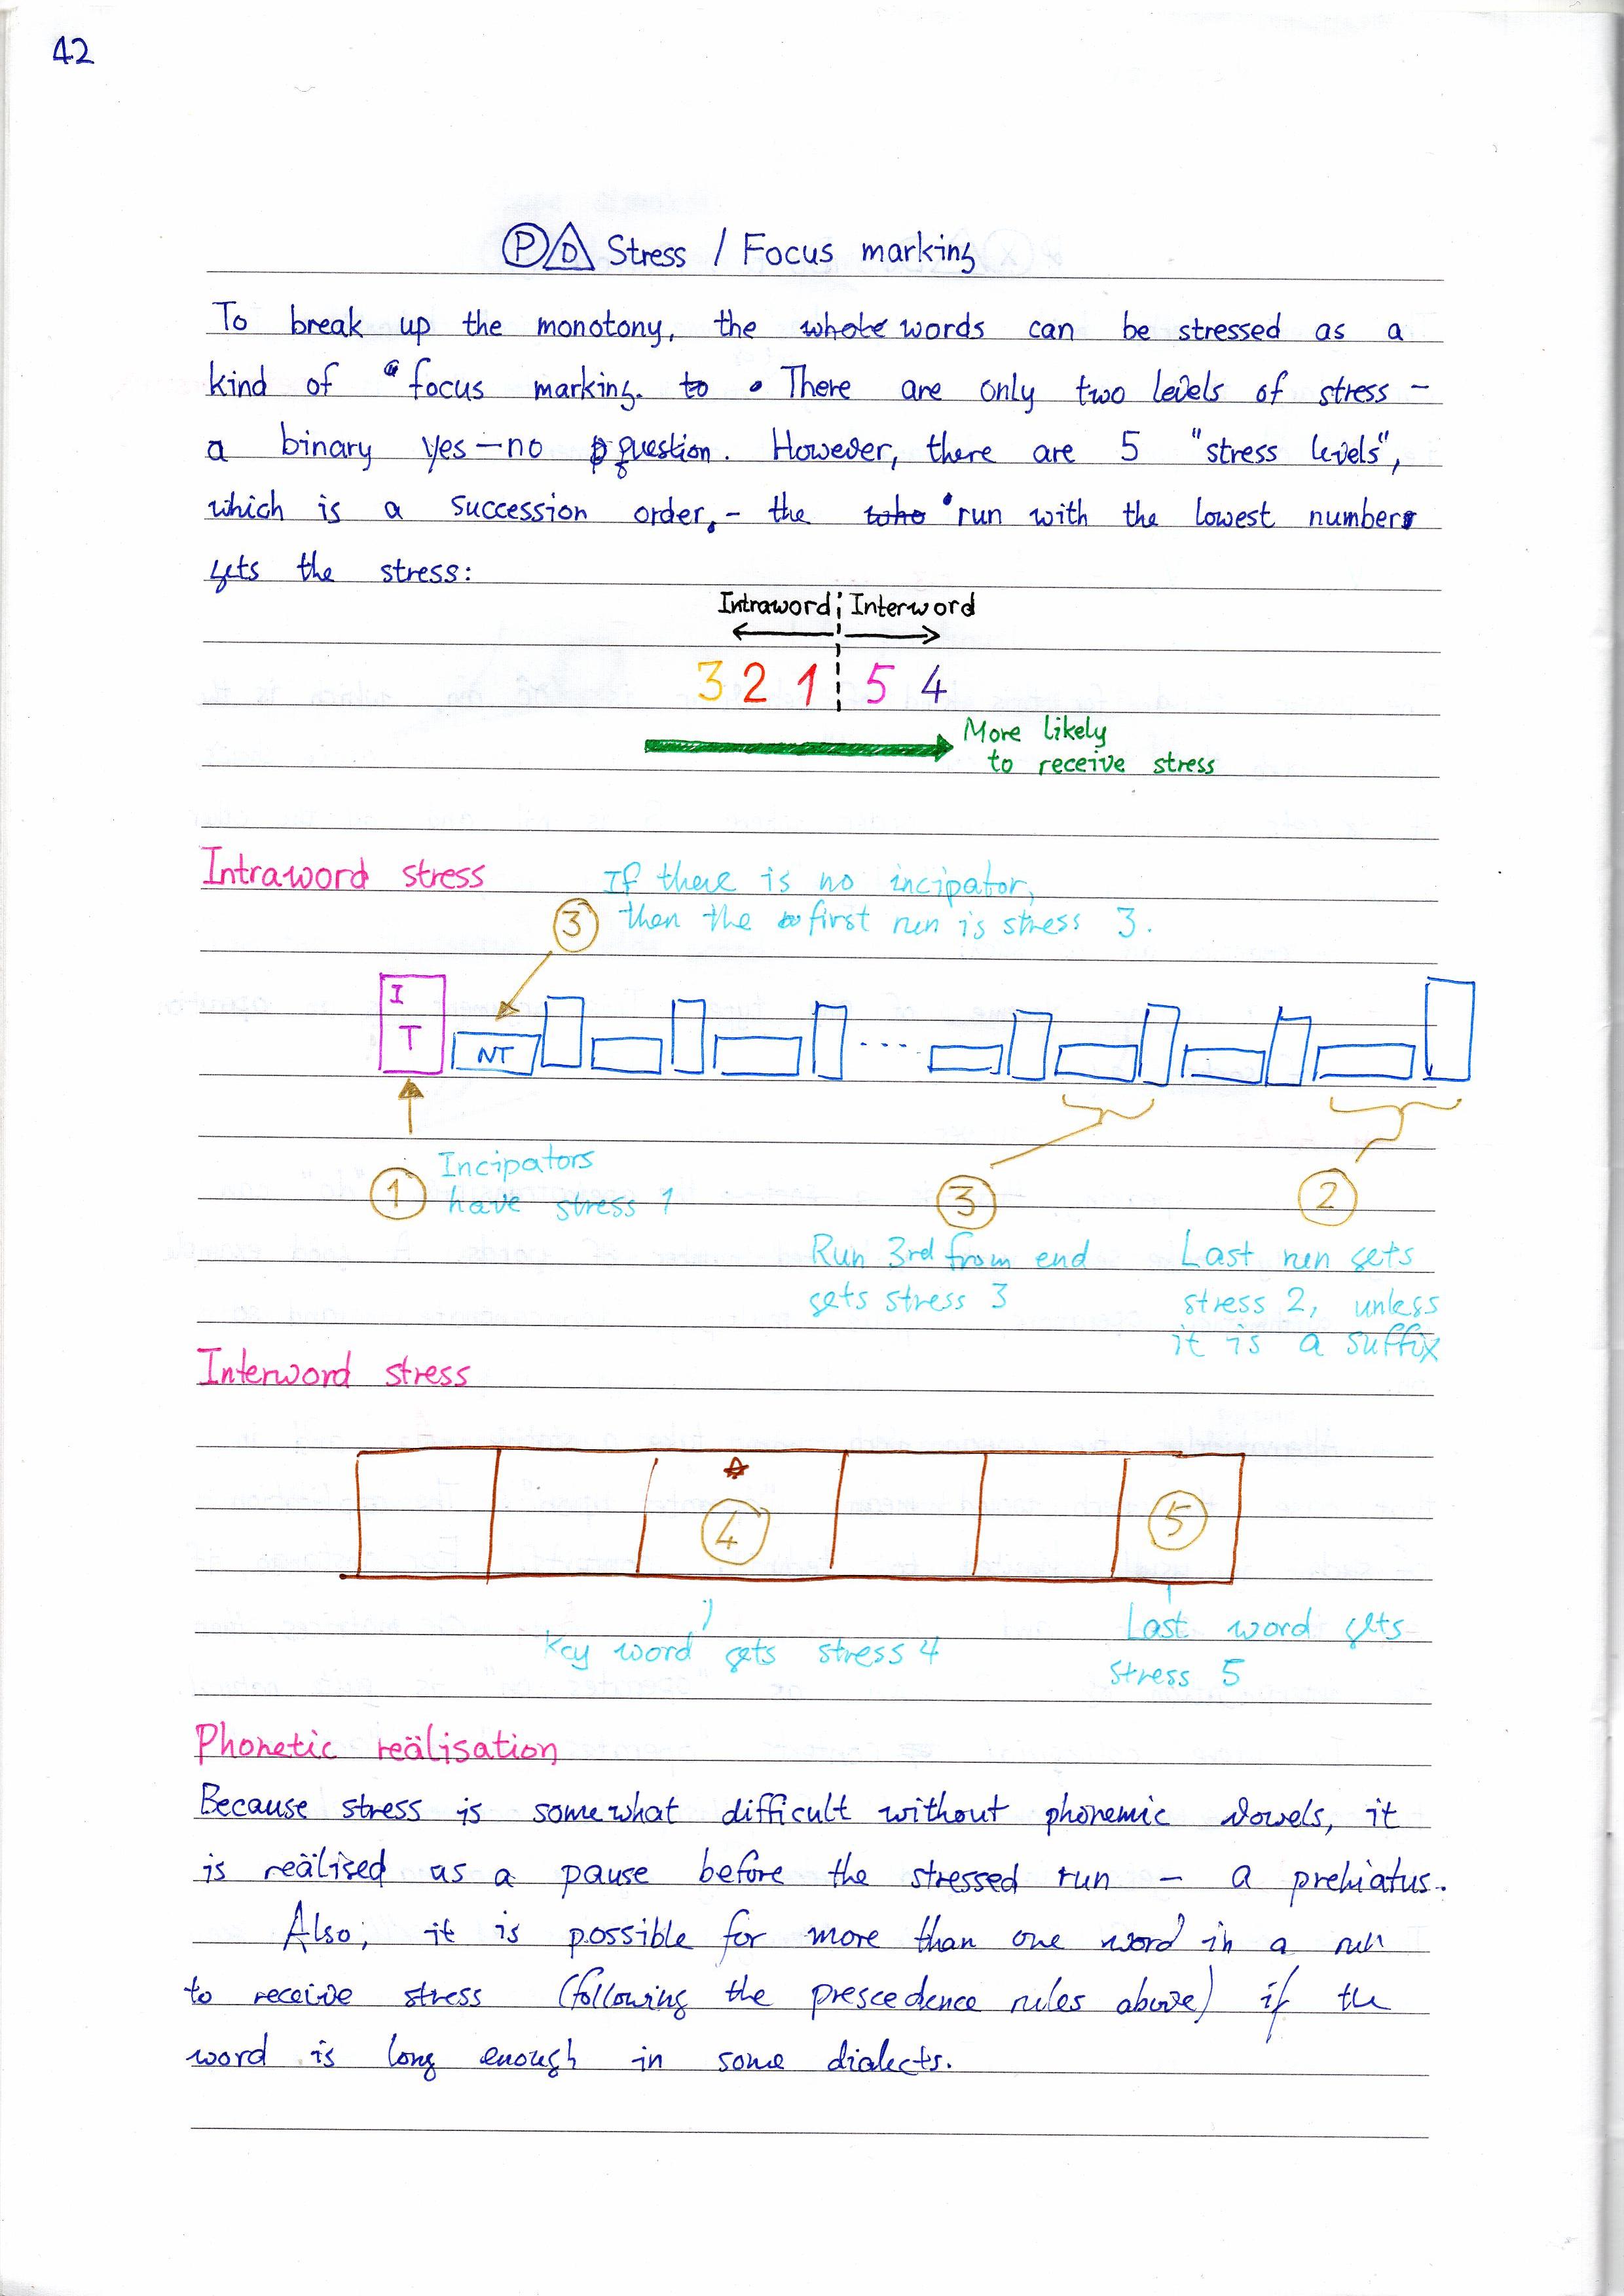 42
P D Stress / Focus marking
To break up the monotony, the whole words can be stressed as a
kind of focus marking. to There are only two levels of stress –
a binary yes–no question. However, there are 5 "stress levels",
which is a succession order, – the who run with the lowest number
gets the stress:
Intraword Interword
3 2 1 5 4
More likely
to receive stress
Intraword stress
If there is no incipator,
3 then the first run is stress 3.
I
T
NT
...
Incipators
1 have stress 1
3
2
Run 3rd from end
gets stress 3
Last run gets
stress 2, unless
it is a suffix
Interword stress
4
5
Key word gets stress 4
Last word gets
stress 5
Phonetic reälisation
Because stress is somewhat difficult without phonemic vowels, it
is reälised as a pause before the stressed run – a prehiatus.
Also, it is possible for more than one word in a run
to receive stress (following the prescedence rules above) if the
word is long enough in some dialects.